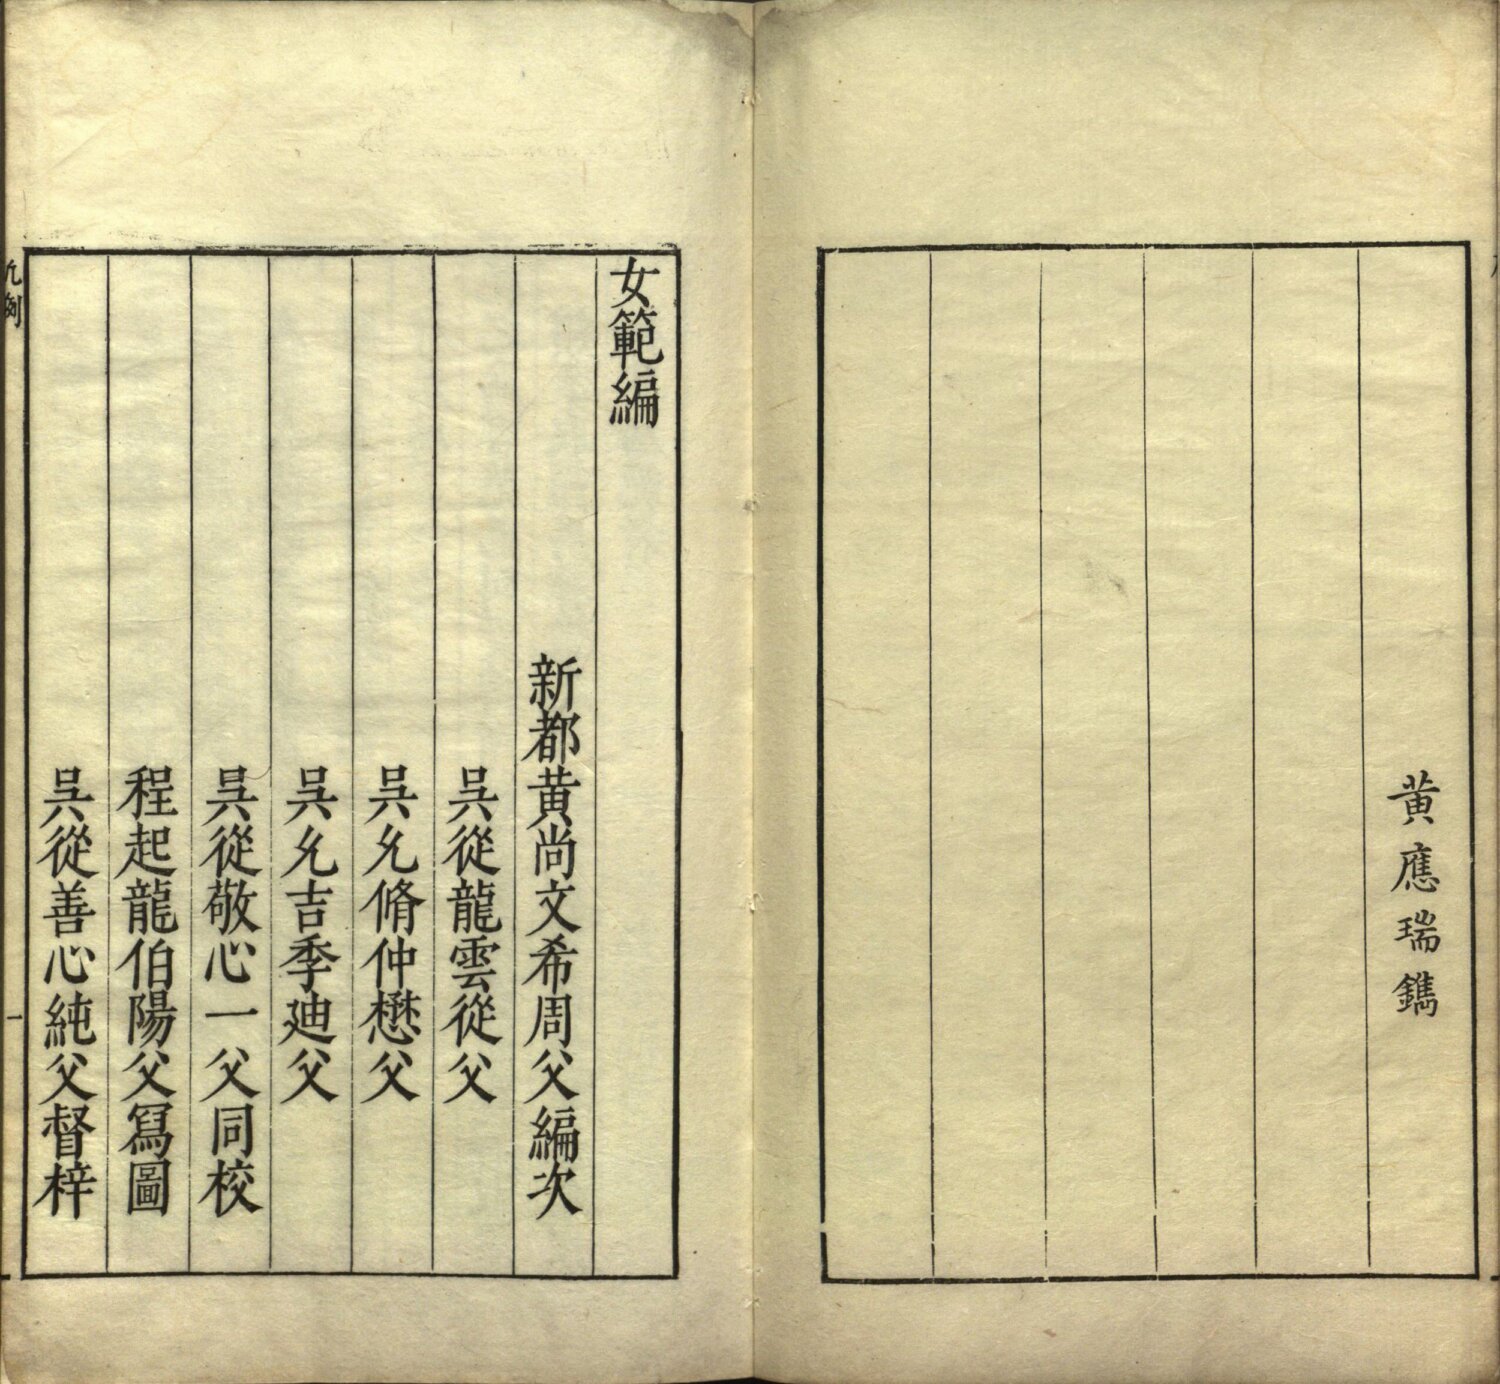 黄應瑞鐫
女範編
新都黄尚文希周父編次
吳從龍雲從父
吳允脩仲懋父
吳允吉季廸父
吳從敬心一父同校
程起龍伯陽父冩圖
吳從善心純父督梓
凢例
一